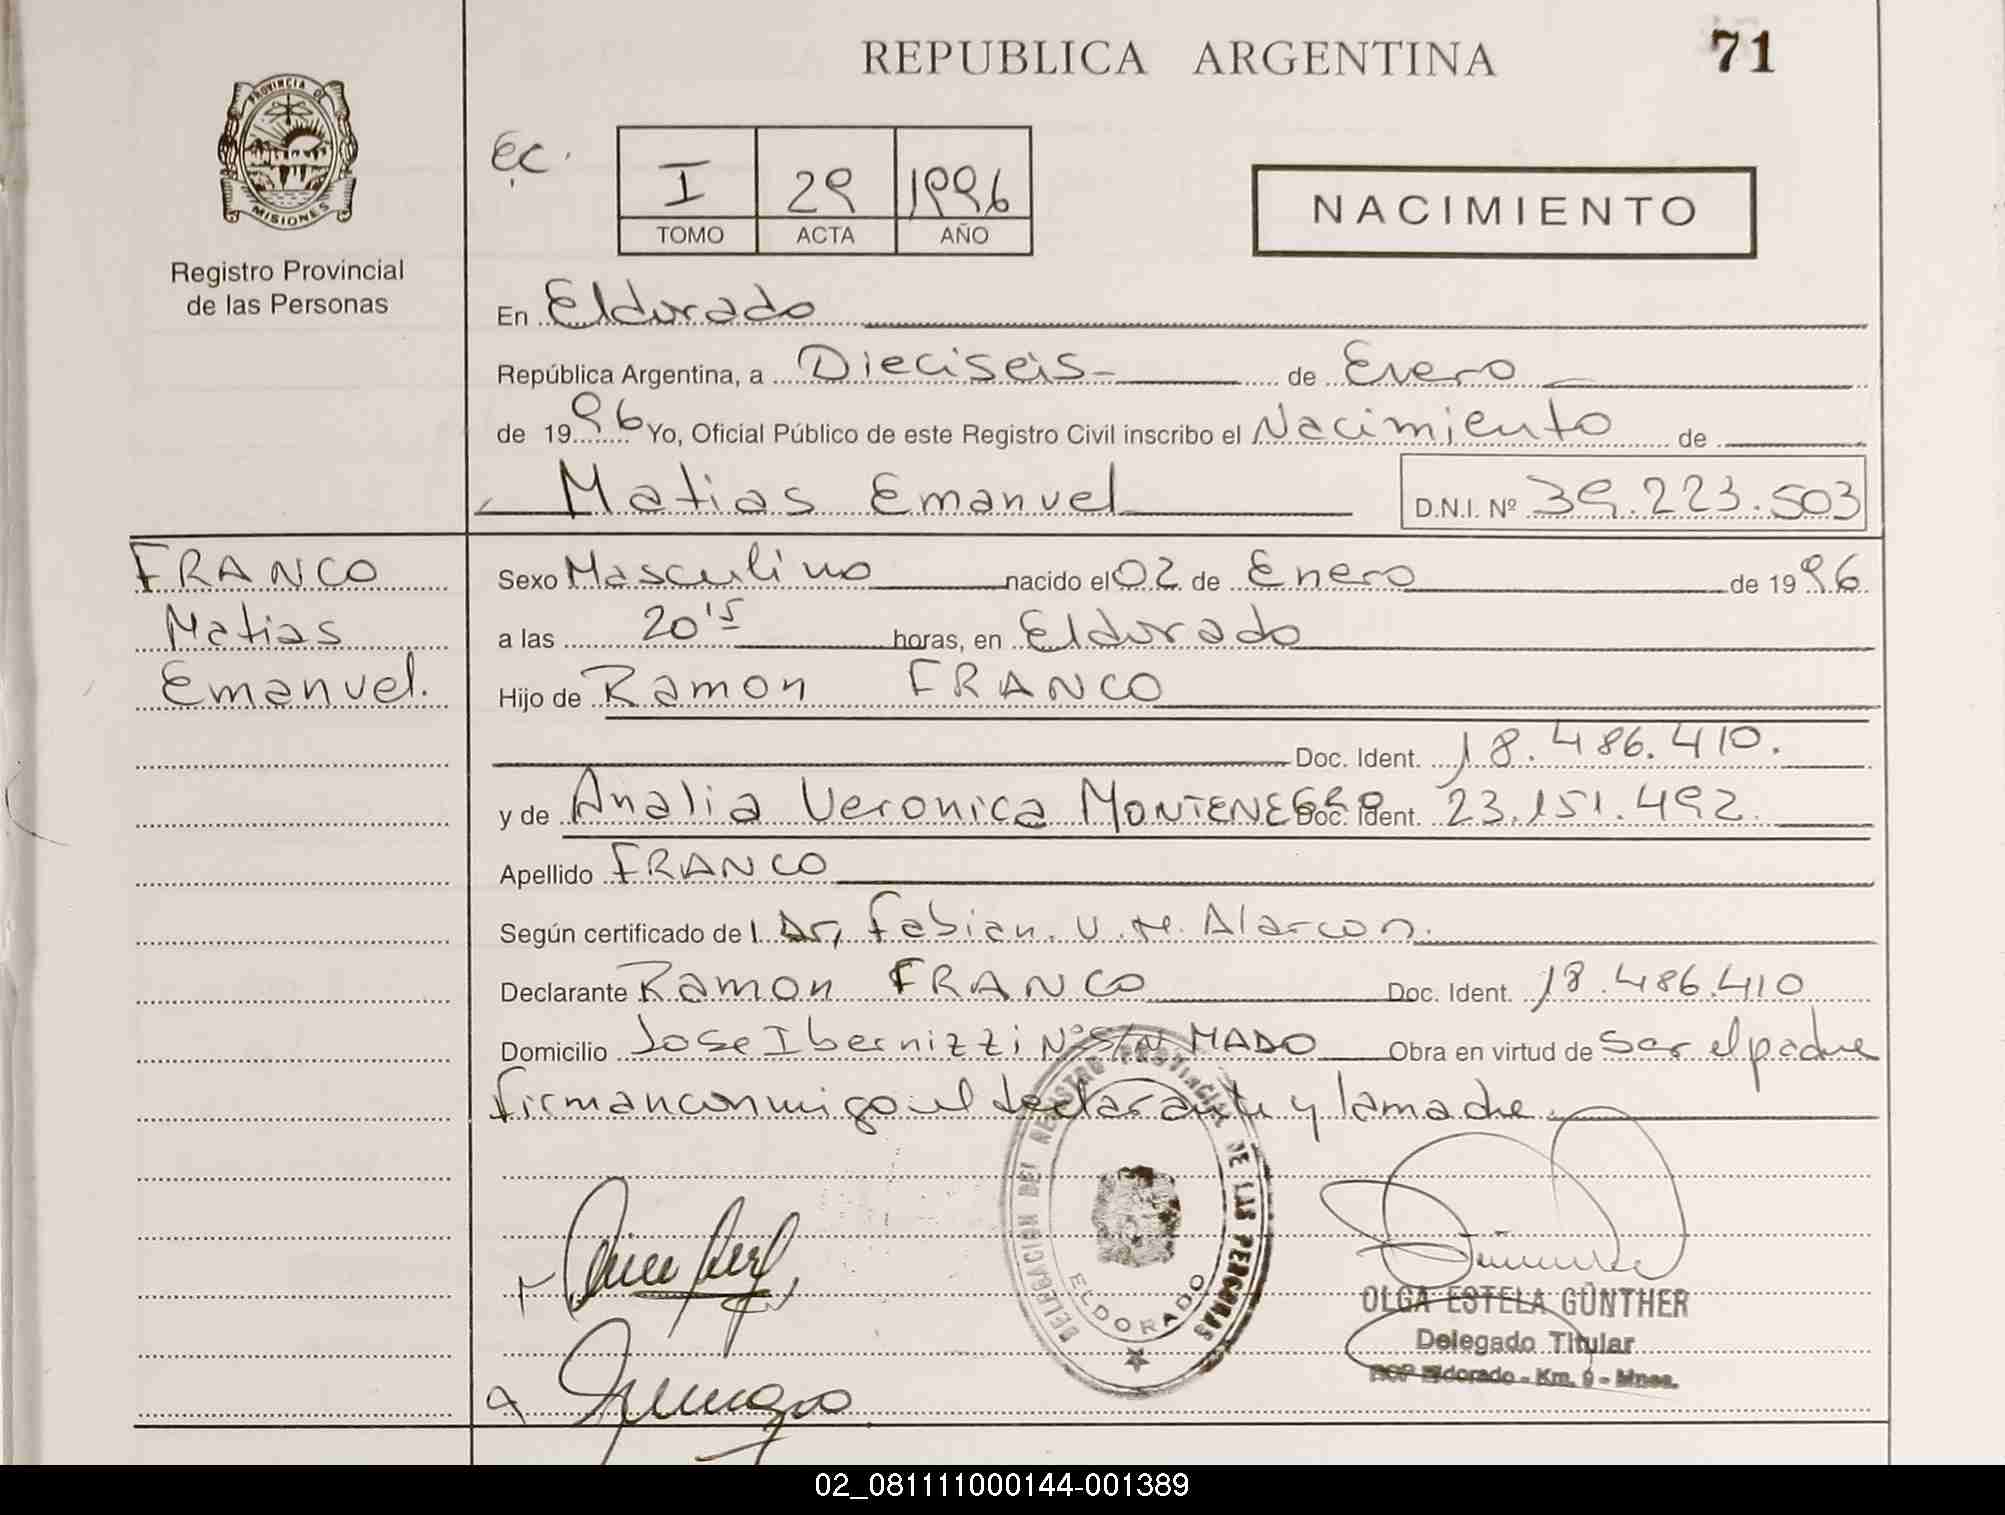 REPUBLICA ARGENTINA
71
PROVINCIA DE
MISIONES
Registro Provincial
de las Personas
EC.
I 29 1996
TOMO ACTA AÑO
NACIMIENTO
En Eldorado
República Argentina, a Dieciseis de Enero
de 1996 Yo, Oficial Público de este Registro Civil inscribo el Nacimiento de
Matias Emanuel D.N.I. Nº 39.223.503
FRANCO
Matias
Emanuel.
Sexo Masculino nacido el 02 de Enero de 1996
a las 20'15 horas, en Eldorado
Hijo de Ramon FRANCO
Doc. Ident. 18.486.410.
y de Analia Veronica MONTENEGRO Doc. Ident. 23.151.492
Apellido FRANCO
Según certificado de l Dr, Fabian. U. M. Alarcon.
Declarante Ramon FRANCO Doc. Ident. 18.486.410
Domicilio Jose Ibernizzi Nº S/N MADO Obra en virtud de ser el padre
firman conmigo el declarante y la madre.
DELEGACION DEL REGISTRO PROVINCIAL DE LAS PERSONAS
ELDORADO
OLGA ESTELA GÜNTHER
Delegado Titular
RCP Eldorado - Km. 9 - Mnes.
02_081111000144-001389